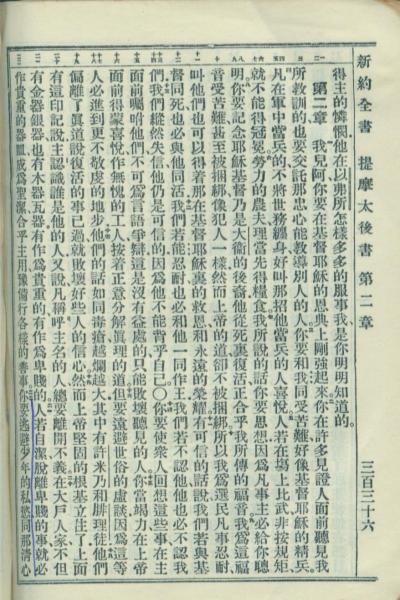 新約全書 提摩太後書 第二章 三百三十六
得主的憐憫他在以弗所怎樣多多的服事我是你明明知道的。
第二章 我兒阿你要在基督耶穌的恩典上剛強起來你在許多見證人面前聽見我
所教訓的也要交託那忠心能教導別人的人你要和我同受苦難好像基督耶穌的精兵。
凡在軍中當兵的不將世務纏身好叫那招他當兵的人喜悅人若在場上比武非按規矩
就不能得冠冕勞力的農夫理當先得糧食我所說的話你要思想因爲凡事主必給你聰
明你要記念耶穌基督乃是大衞的後裔他從死裏復活正合乎我所傳的福音我爲這福
音受苦難甚至被捆綁像犯人一樣然而上帝的道卻不被捆綁所以我爲選民凡事忍耐
叫他們也可以得着那在基督耶穌裏的救恩和永遠的榮耀有可信的話說我們若與基
督同死也必與他同活我們若能忍耐也必和他一同作王我們若不認他他也必不認我
們我們縱然失信他仍是可信的因爲他不能背乎自己〇你要使衆人回想這些事在主
面前囑咐他們不可爲言語爭辯這是沒有益處的只能敗壞聽見的人你當竭力在上帝
面前得蒙喜悅作無愧的工人按着正意分解眞理的道但要遠避世俗的虛談因爲這等
人必進到更不敬虔的地步他們的話如同毒瘡越爛越大其中有許米乃和腓理徒他們
偏離了眞道說復活的事已過就敗壞好些人的信心然而上帝堅固的根基立住了上面
有這印記說主認識誰是他的人又說凡稱呼主名的人總要離開不義在大戶人家不但
有金器銀器也有木器瓦器有作爲貴重的有作爲卑賤的人若自潔脫離卑賤的事就必
作貴重的器皿成爲聖潔合乎主用豫備行各樣的善事你要逃避少年的私慾同那清心